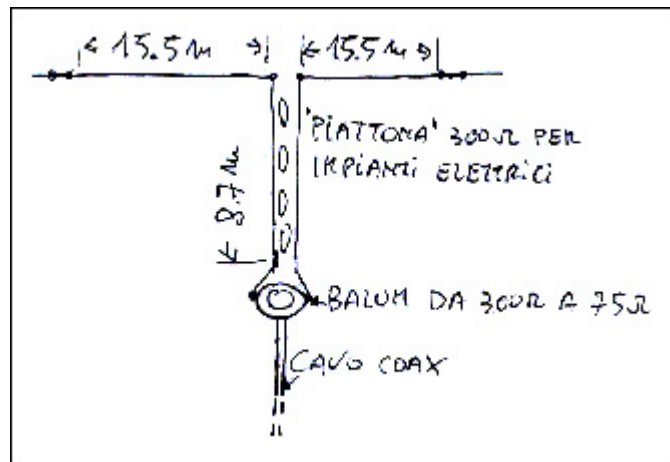 15.5 m 15.5 m
"PIATTOMA" 300Ω PER
IMPIANTI ELETTRICI
8.7 m
BALUM DA 300Ω A 75Ω
CAVO COAX